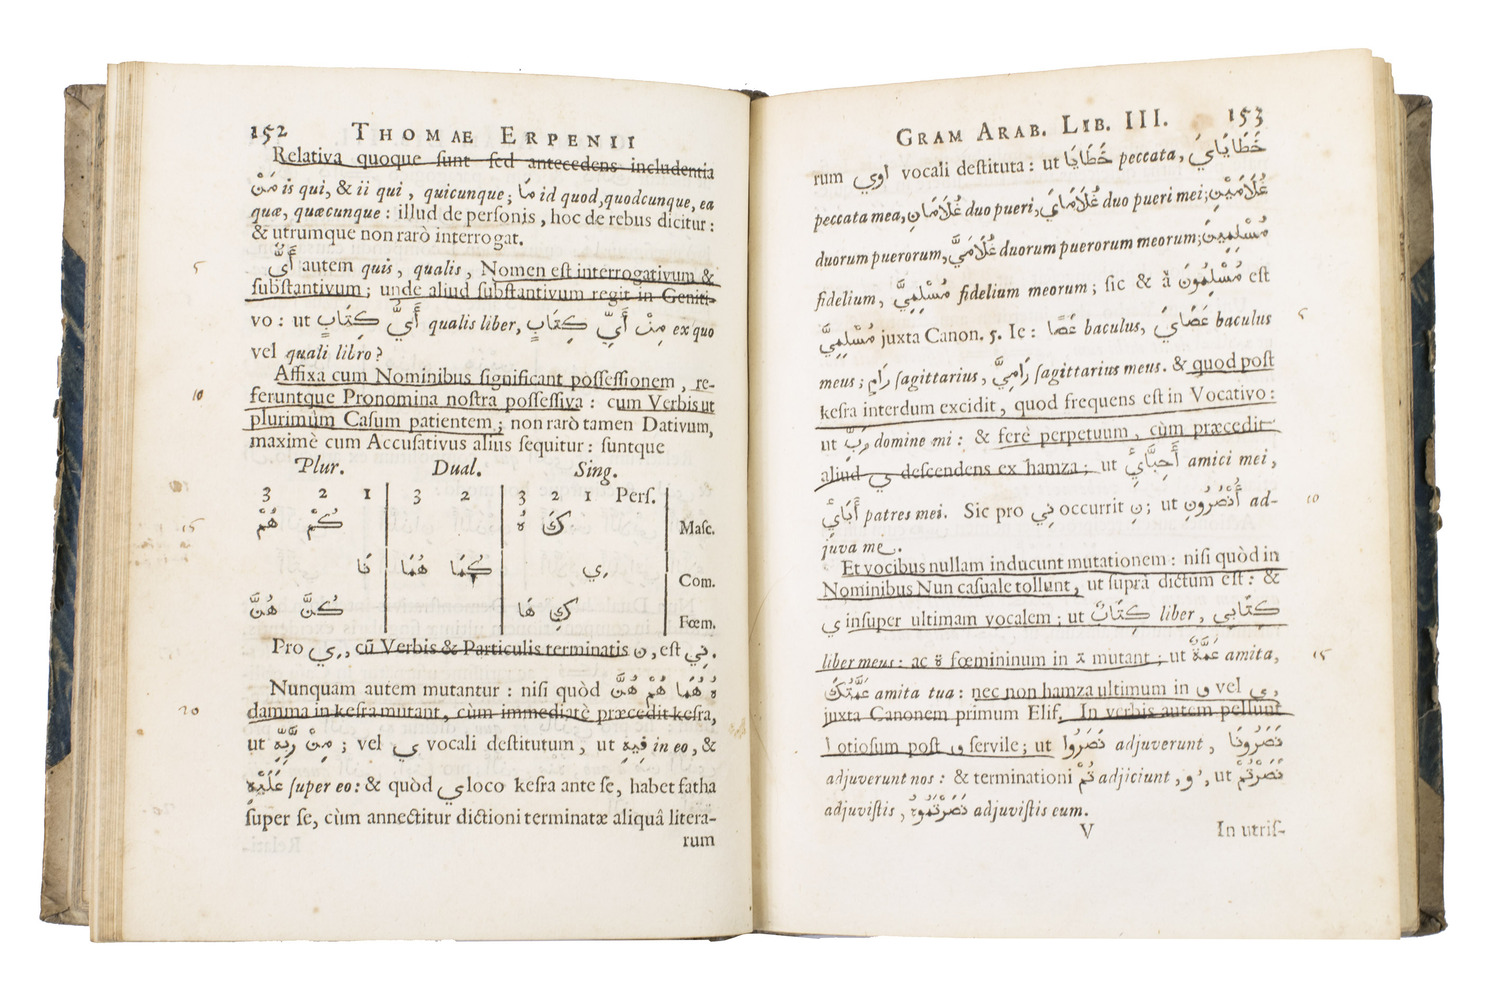 152 THOMAE ERPENII
Relativa quoque sunt sed antecedens includentia
مَنْ is qui, & ii qui, quicunque; مَا id quod, quodcunque, ea
quæ, quæcunque: illud de personis, hoc de rebus dicitur:
& utrumque non rarò interrogat.
5
أَيٌّ autem quis, qualis, Nomen est interrogativum &
substantivum; unde aliud substantivum regit in Geniti-
vo: ut أَيُّ كِتَابٍ qualis liber, مِنْ أَيِّ كِتَابٍ ex quo
vel quali libro?
10
Affixa cum Nominibus significant possessionem, re-
feruntque Pronomina nostra possessiva: cum Verbis ut
plurimùm Casum patientem; non rarò tamen Dativum,
maximè cum Accusativus alius sequitur: suntque
Plur. Dual. Sing.
3 2 1 3 2 3 2 1 Pers.
15
هُمْ كُمْ هُ كَ Masc.
نَا هُمَا كُمَا ـِي Com.
هُنَّ كُنَّ هَا كِ Fœm.
Pro ـِي, cũ Verbis & Particulis terminatis ن, est نِي.
Nunquam autem mutantur: nisi quòd هُ هُمَا هُمْ هُنَّ
20
damma in kesra mutant, cùm immediatè præcedit kesra,
ut مِنْ رَبِّهِ; vel ي vocali destitutum, ut فِيهِ in eo, &
عَلَيْهِ super eo: & quòd ي loco kesra ante se, habet fatha
super se, cùm annectitur dictioni terminatæ aliquâ litera-
rum
GRAM ARAB. LIB. III. 153
rum اوي vocali destituta: ut خَطَايَا peccata, خَطَايَايَ
peccata mea, غُلَامَانِ duo pueri, غُلَامَايَ duo pueri mei; غُلَامَيْنِ
duorum puerorum, غُلَامَيَّ duorum puerorum meorum; مُسْلِمِينَ
fidelium, مُسْلِمِيَّ fidelium meorum; sic & à مُسْلِمُونَ est
5
مُسْلِمِيَّ juxta Canon. 5. Ie: عَصًا baculus, عَصَايَ baculus
meus; رَامٍ sagittarius, رَامِيَّ sagittarius meus. & quod post
kesra interdum excidit, quod frequens est in Vocativo:
ut رَبِّ domine mi: & ferè perpetuum, cùm præcedit
aliud ي descendens ex hamza; ut أَحِبَّاءِي amici mei,
10
أَبَاءِي patres mei. Sic pro نِي occurrit نِ; ut أُنْصُرُونِ ad-
juva me.
Et vocibus nullam inducunt mutationem: nisi quòd in
Nominibus Nun casuale tollunt, ut supra dictum est: &
ي insuper ultimam vocalem; ut كِتَابٌ liber, كِتَابِي
15
liber meus: ac ة fœmininum in ت mutant; ut عَمَّةٌ amita,
عَمَّتُكَ amita tua: nec non hamza ultimum in و vel ي,
juxta Canonem primum Elif. In verbis autem pellunt
ا otiosum post و servile; ut نَصَرُوا adjuverunt, نَصَرُونَا
adjuverunt nos: & terminationi تُمْ adjiciunt, و, ut نَصَرْتُمْ
adjuvistis, نَصَرْتُمُوهُ adjuvistis eum.
V In utris-